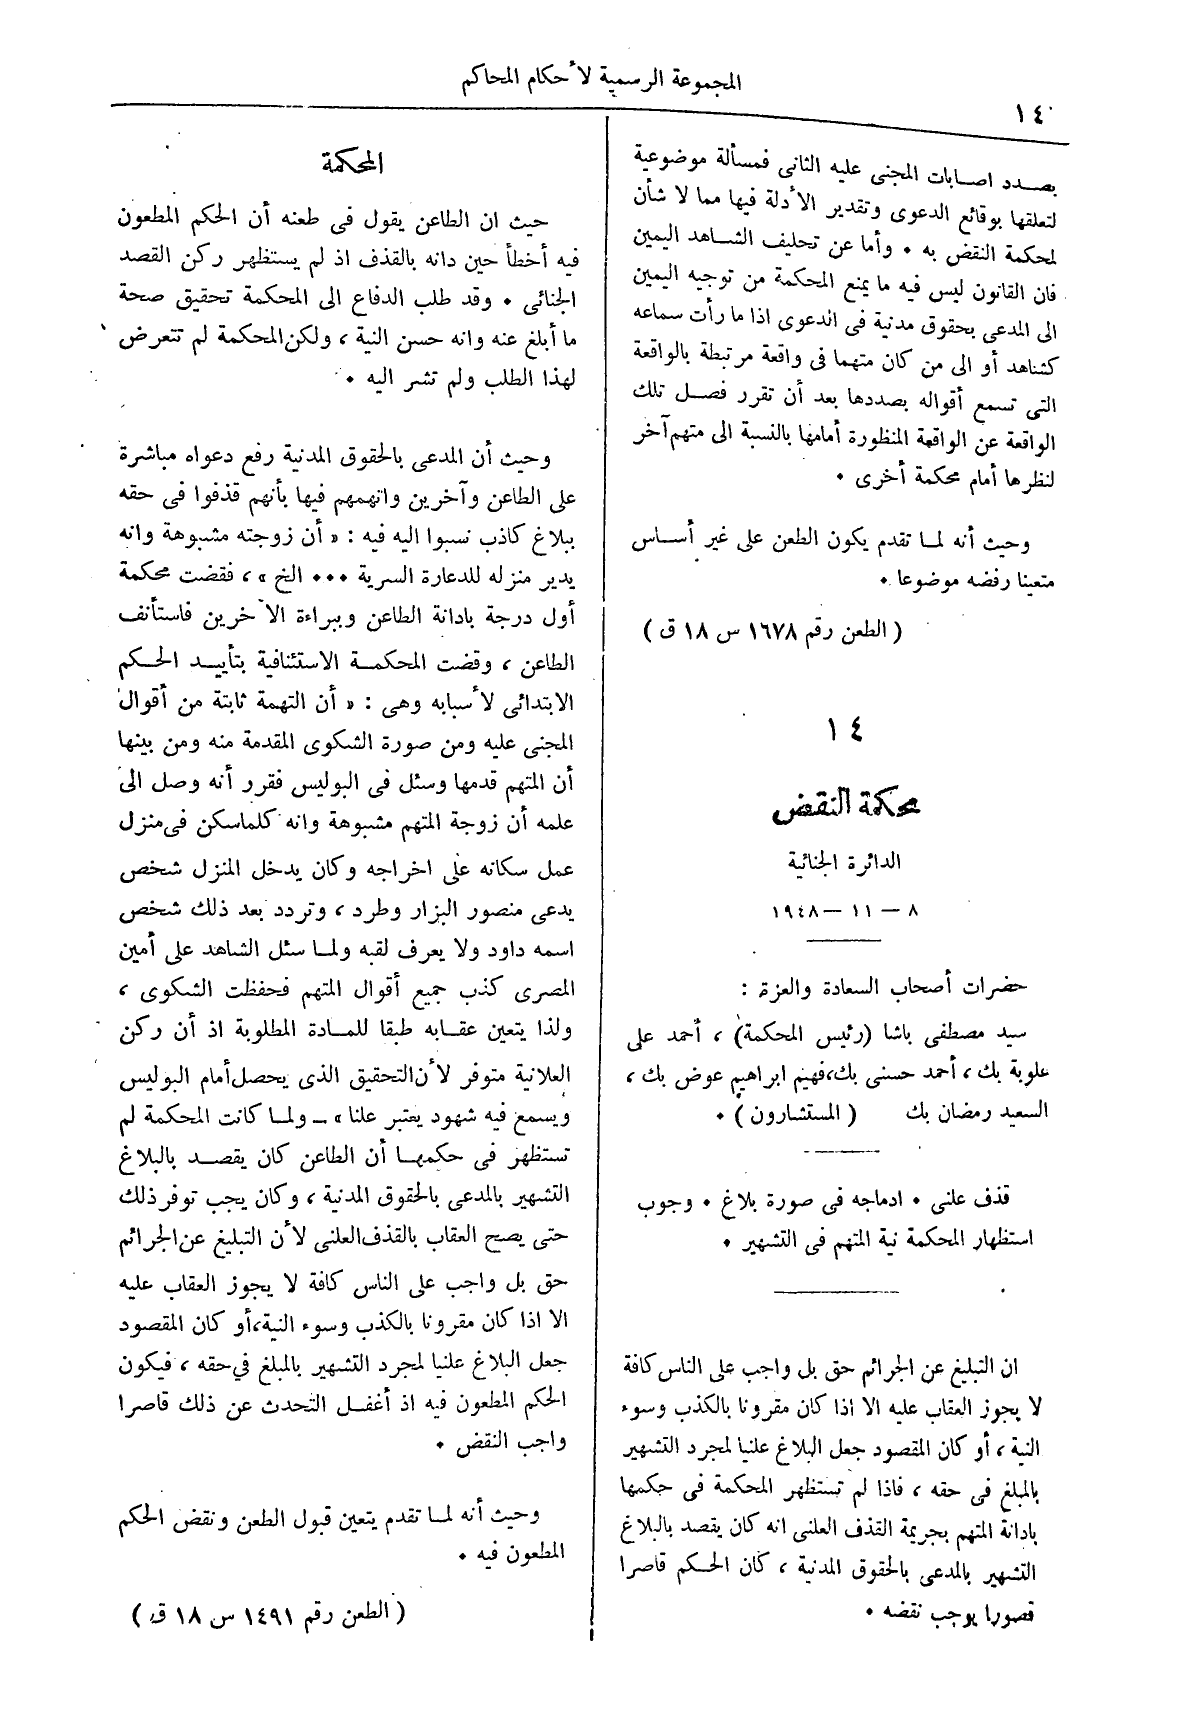 المجموعة الرسمية لأحكام المحاكم
١٤
بصدد اصابات المجنى عليه الثانى فمسألة موضوعية
لتعلقها بوقائع الدعوى وتقدير الأدلة فيها مما لا شأن
لمحكمة النقض به . وأما عن تحليف الشاهد اليمين
فان القانون ليس فيه ما يمنع المحكمة من توجيه اليمين
الى المدعى بحقوق مدنية فى الدعوى اذا ما رأت سماعه
كشاهد أو الى من كان متهما فى واقعة مرتبطة بالواقعة
التى تسمع أقواله بصددها بعد أن تقرر فصل تلك
الواقعة عن الواقعة المنظورة أمامها بالنسبة الى متهم آخر
لنظرها أمام محكمة أخرى .
وحيث أنه لما تقدم يكون الطعن على غير أساس
متعينا رفضه موضوعا .
( الطعن رقم ١٦٧٨ س ١٨ ق )
١٤
محكمة النقض
الدائرة الجنائية
٨ – ١١ – ١٩٤٨
حضرات أصحاب السعادة والعزة :
سيد مصطفى باشا (رئيس المحكمة) ، أحمد على
علوبة بك ، أحمد حسنى بك، فهيم ابراهيم عوض بك ،
السعيد رمضان بك ( المستشارون ) .
قذف علنى . ادماجه فى صورة بلاغ . وجوب
استظهار المحكمة نية المتهم فى التشهير .
ان التبليغ عن الجرائم حق بل واجب على الناس كافة
لا يجوز العقاب عليه الا اذا كان مقرونا بالكذب وسوء
النية ، أو كان المقصود جعل البلاغ علنيا لمجرد التشهير
بالمبلغ فى حقه ، فاذا لم تستظهر المحكمة فى حكمها
بادانة المتهم بجريمة القذف العلنى انه كان يقصد بالبلاغ
التشهير بالمدعى بالحقوق المدنية ، كان الحكم قاصرا
قصورا يوجب نقضه .
المحكمة
حيث ان الطاعن يقول فى طعنه أن الحكم المطعون
فيه أخطأ حين دانه بالقذف اذ لم يستظهر ركن القصد
الجنائى . وقد طلب الدفاع الى المحكمة تحقيق صحة
ما أبلغ عنه وانه حسن النية ، ولكن المحكمة لم تتعرض
لهذا الطلب ولم تشر اليه .
وحيث أن المدعى بالحقوق المدنية رفع دعواه مباشرة
على الطاعن وآخرين واتهمهم فيها بأنهم قذفوا فى حقه
ببلاغ كاذب نسبوا اليه فيه : « أن زوجته مشبوهة وانه
يدير منزله للدعارة السرية ... الخ » ، فقضت محكمة
أول درجة بادانة الطاعن وبراءة الآخرين فاستأنف
الطاعن ، وقضت المحكمة الاستئنافية بتأييد الحكم
الابتدائى لأسبابه وهى : « أن التهمة ثابتة من أقوال
المجنى عليه ومن صورة الشكوى المقدمة منه ومن بينها
أن المتهم قدمها وسئل فى البوليس فقرر أنه وصل الى
علمه أن زوجة المتهم مشبوهة وانه كلما سكن فى منزل
عمل سكانه على اخراجه وكان يدخل المنزل شخص
يدعى منصور البزار وطرد ، وتردد بعد ذلك شخص
اسمه داود ولا يعرف لقبه ولما سئل الشاهد على أمين
المصرى كذب جميع أقوال المتهم فحفظت الشكوى ،
ولذا يتعين عقابه طبقا للمادة المطلوبة اذ أن ركن
العلانية متوفر لأن التحقيق الذى يحصل أمام البوليس
ويسمع فيه شهود يعتبر علنا » – ولما كانت المحكمة لم
تستظهر فى حكمها أن الطاعن كان يقصد بالبلاغ
التشهير بالمدعى بالحقوق المدنية ، وكان يجب توفر ذلك
حتى يصح العقاب بالقذف العلنى لأن التبليغ عن الجرائم
حق بل واجب على الناس كافة لا يجوز العقاب عليه
الا اذا كان مقرونا بالكذب وسوء النية، أو كان المقصود
جعل البلاغ علنيا لمجرد التشهير بالمبلغ في حقه ، فيكون
الحكم المطعون فيه اذ أغفل التحدث عن ذلك قاصرا
واجب النقض .
وحيث أنه لما تقدم يتعين قبول الطعن ونقض الحكم
المطعون فيه .
( الطعن رقم ١٤٩١ س ١٨ ق )